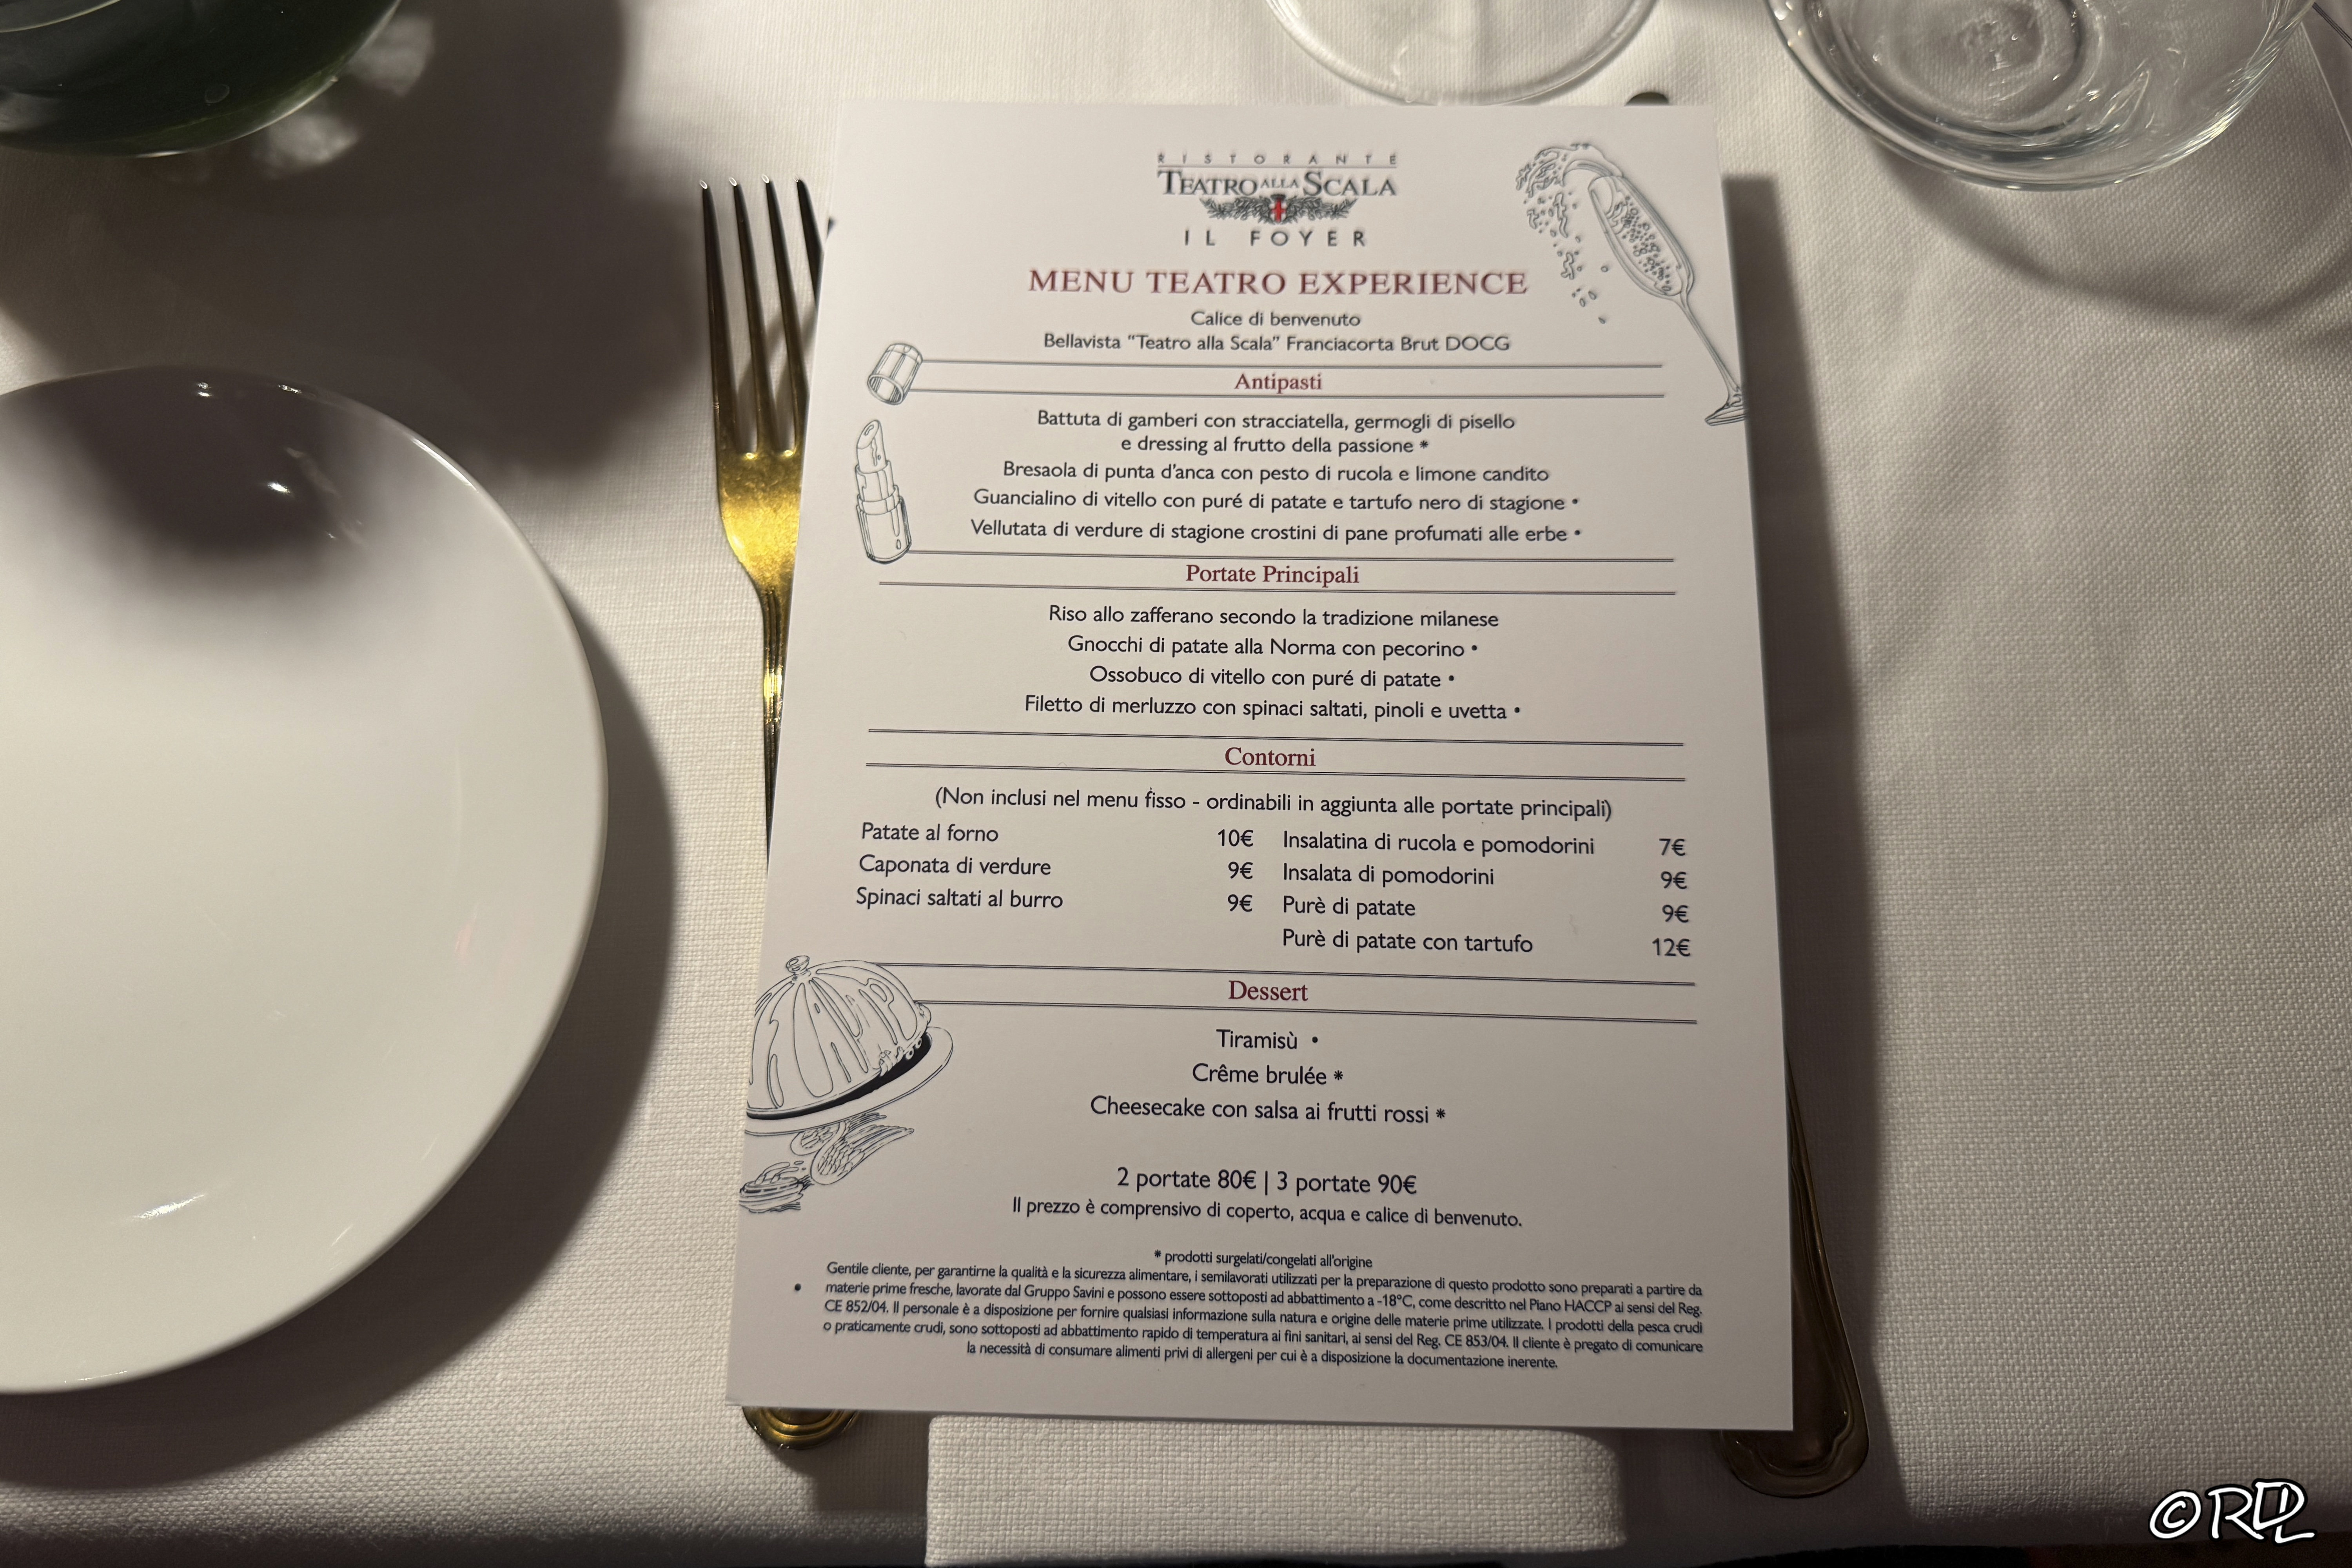 RISTORANTE
TEATRO ALLA SCALA
IL FOYER
MENU TEATRO EXPERIENCE
Calice di benvenuto
Bellavista “Teatro alla Scala” Franciacorta Brut DOCG
Antipasti
Battuta di gamberi con stracciatella, germogli di pisello
e dressing al frutto della passione *
Bresaola di punta d’anca con pesto di rucola e limone candito
Guancialino di vitello con puré di patate e tartufo nero di stagione •
Vellutata di verdure di stagione crostini di pane profumati alle erbe •
Portate Principali
Riso allo zafferano secondo la tradizione milanese
Gnocchi di patate alla Norma con pecorino •
Ossobuco di vitello con puré di patate •
Filetto di merluzzo con spinaci saltati, pinoli e uvetta •
Contorni
(Non inclusi nel menu fisso - ordinabili in aggiunta alle portate principali)
Patate al forno 10€
Caponata di verdure 9€
Spinaci saltati al burro 9€
Insalatina di rucola e pomodorini 7€
Insalata di pomodorini 9€
Purè di patate 9€
Purè di patate con tartufo 12€
Dessert
Tiramisù •
Crême brulée *
Cheesecake con salsa ai frutti rossi *
2 portate 80€ | 3 portate 90€
Il prezzo è comprensivo di coperto, acqua e calice di benvenuto.
* prodotti surgelati/congelati all'origine
Gentile cliente, per garantirne la qualità e la sicurezza alimentare, i semilavorati utilizzati per la preparazione di questo prodotto sono preparati a partire da
• materie prime fresche, lavorate dal Gruppo Savini e possono essere sottoposti ad abbattimento a -18°C, come descritto nel Piano HACCP ai sensi del Reg.
CE 852/04. Il personale è a disposizione per fornire qualsiasi informazione sulla natura e origine delle materie prime utilizzate. I prodotti della pesca crudi
o praticamente crudi, sono sottoposti ad abbattimento rapido di temperatura ai fini sanitari, ai sensi del Reg. CE 853/04. Il cliente è pregato di comunicare
la necessità di consumare alimenti privi di allergeni per cui è a disposizione la documentazione inerente.
©RDL